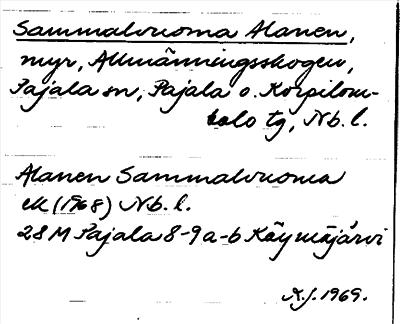 Sammalvuoma Alanen,
myr, Allmänningsskogen,
Pajala sn, Pajala o. Korpilom-
bolo tg, Nb. l.
Alanen Sammalvuoma
ek (1968) Nb. l.
28 M Pajala 8-9 a-b Käymäjärvi
A.J. 1969.